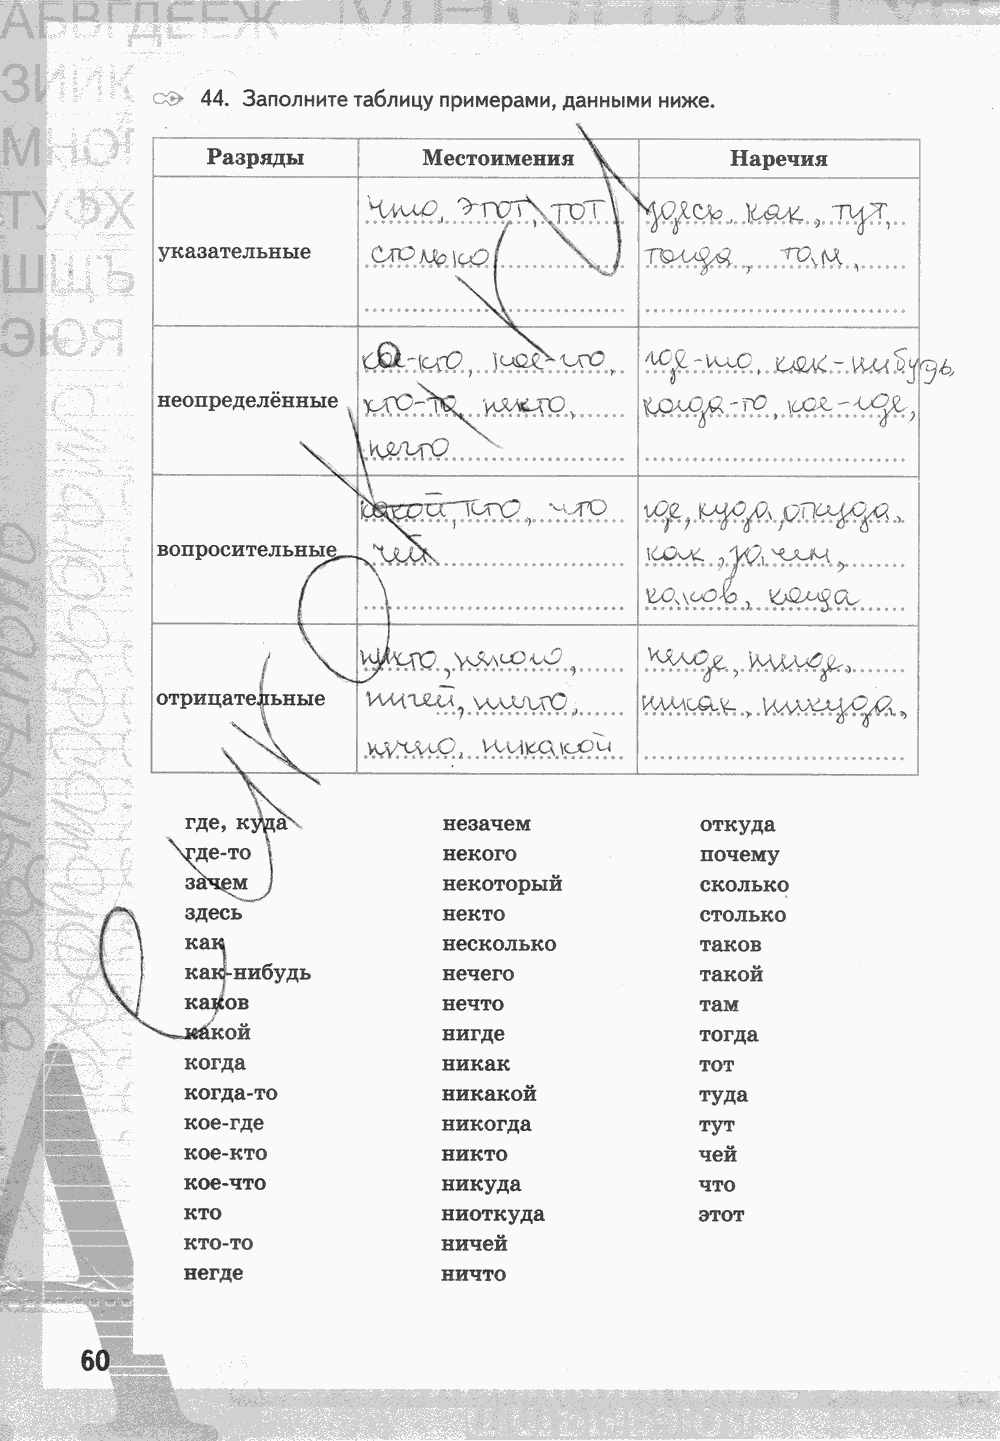 АБВГДЕЕЖ
ЗИЙК
МНО
ТУФХ
ШЩЪ
ЭЮЯ
44. Заполните таблицу примерами, данными ниже.
Разряды Местоимения Наречия
указательные
что, этот, тот
столько
здесь, как, тут,
тогда, там,
неопределённые
кое-кто, кое-что,
кто-то, некто,
нечто
где-то, как-нибудь,
когда-то, кое-где,
вопросительные
какой, кто, что
чей
где, куда, откуда,
как, зачем,
каков, когда
отрицательные
никто, некого,
ничей, ничто,
нечего, никакой
негде, нигде,
никак, никуда,
где, куда незачем откуда
где-то некого почему
зачем некоторый сколько
здесь некто столько
как несколько таков
как-нибудь нечего такой
каков нечто там
какой нигде тогда
когда никак тот
когда-то никакой туда
кое-где никогда тут
кое-кто никто чей
кое-что никуда что
кто ниоткуда этот
кто-то ничей
негде ничто
60